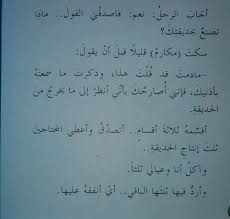 أجَابَ الرجلُ: نعم: فاصدقْني القولَ.. ماذا
تصنعُ بحديقتِك؟
سكتَ (مكارم) قليلًا قبلَ أنْ يقولَ:
-مادمتَ قد قُلْتَ هذا، وذكرتَ ما سمعتَهُ
بأذنيكَ، فإني أُصارحُكَ بأني أنظرُ إلى ما يخرجُ من
الحديقةِ.
أقسِّمُهُ ثلاثةَ أقسامٍ.. أتصدَّقُ وأعطي المحتاجين
ثلثَ إنتاجِ الحديقةِ..
وآكلُ أنا وعيالي ثلثًا.
وأردُّ فيها ثلثَها الباقي.. أيْ أنفقهُ عليها.